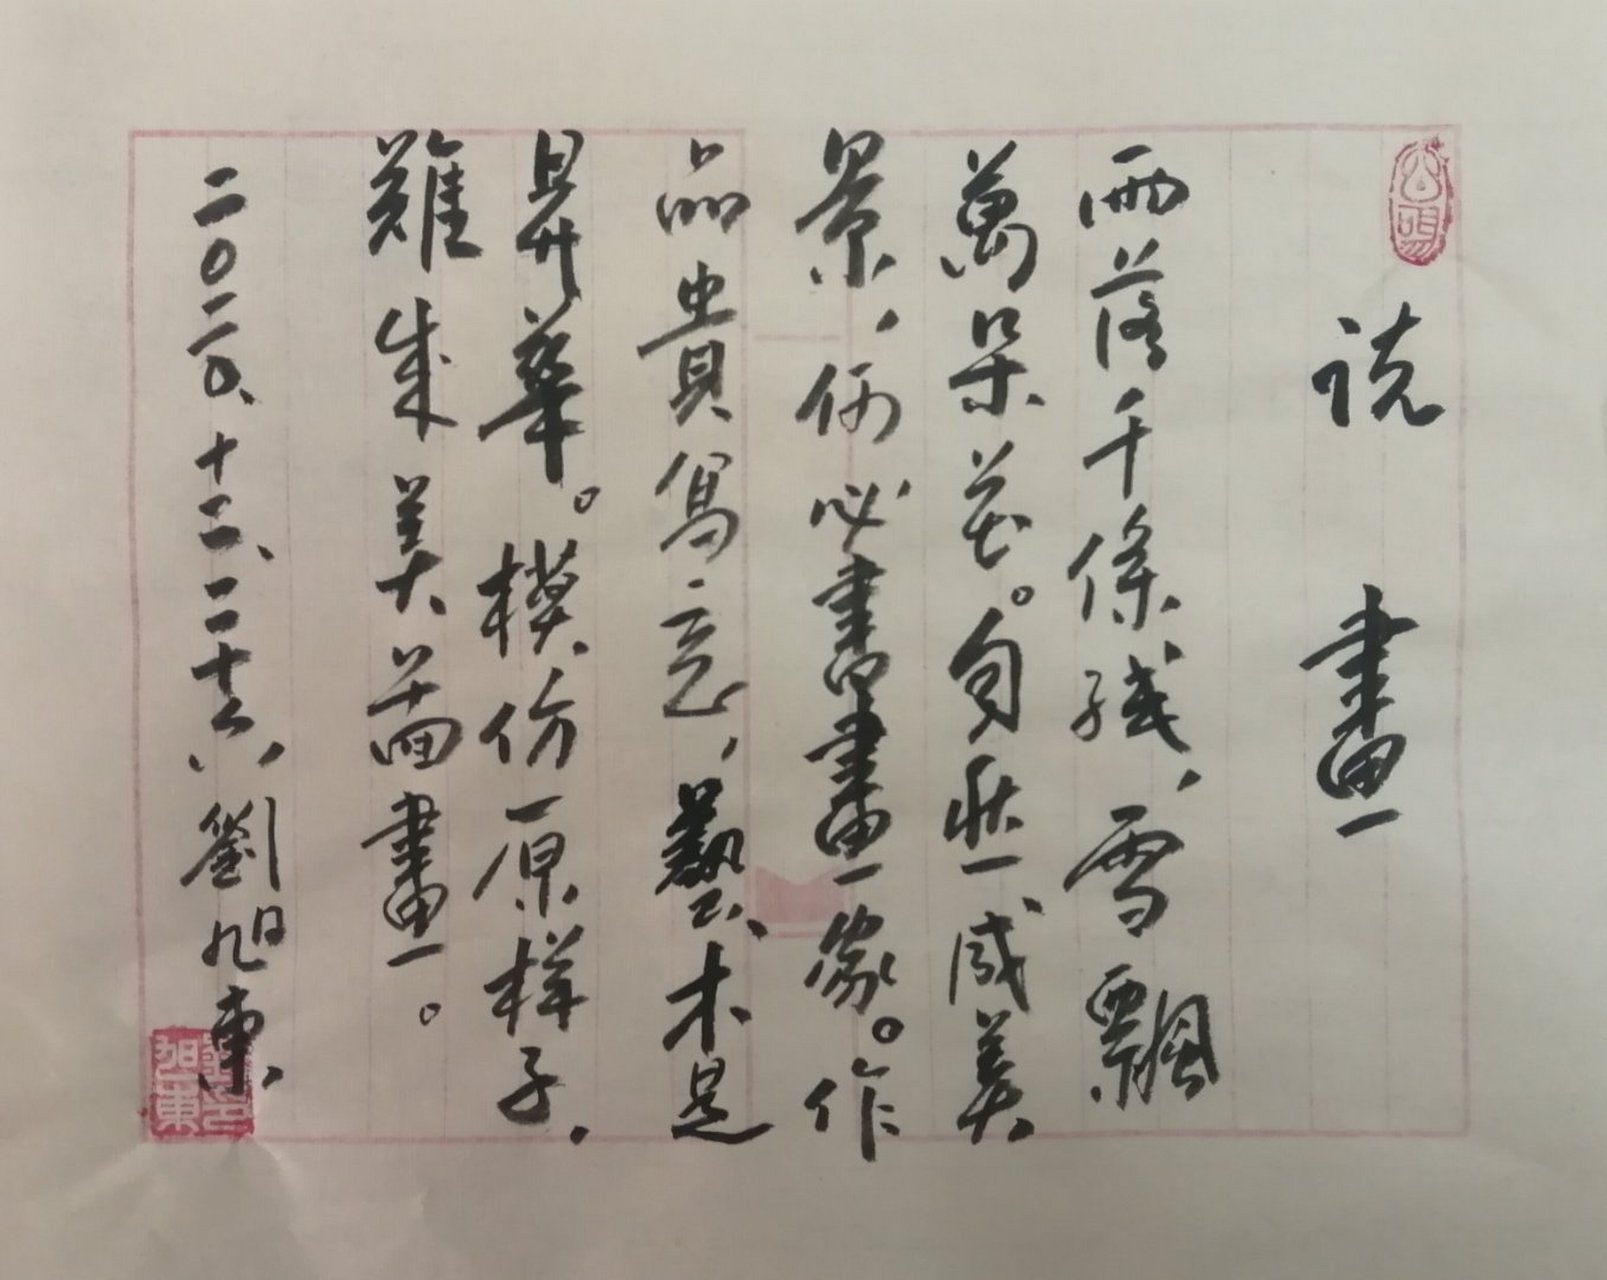 说畫
雨落千條綫，雪飄
萬朵花。自然成美
景，何必書畫家。作
品貴寫意，藝术是
昇華。模仿原样子，
難成美畫。
二〇二〇、十二、二十六、劉旭東
劉旭東印